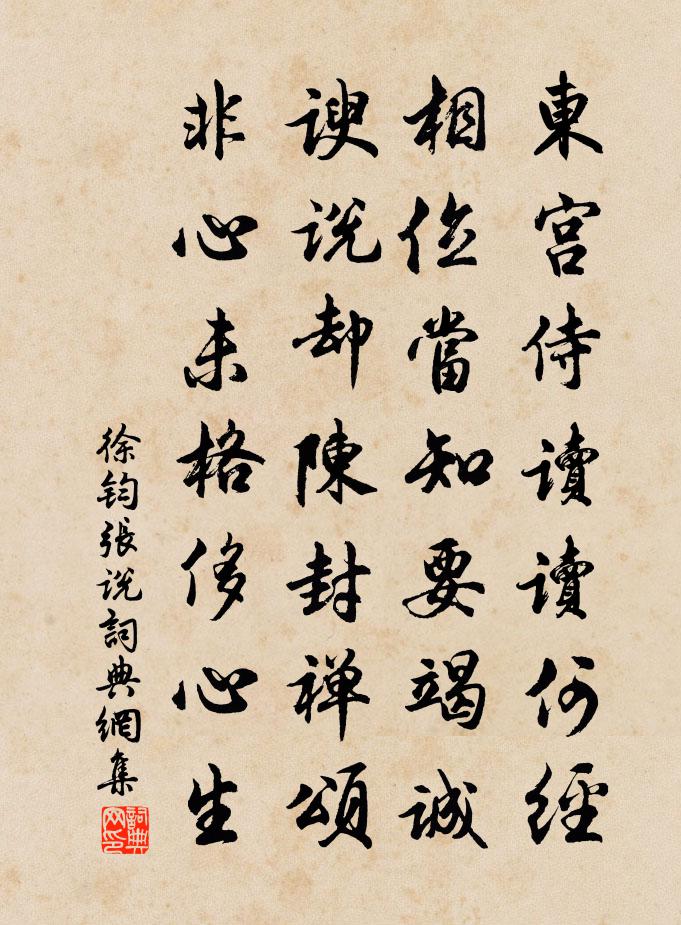 東宮侍讀讀何經
相位當知要竭誠
諛說却陳封禪頌
非心未格侈心生
徐鈞張說詞典網集
詞典网印